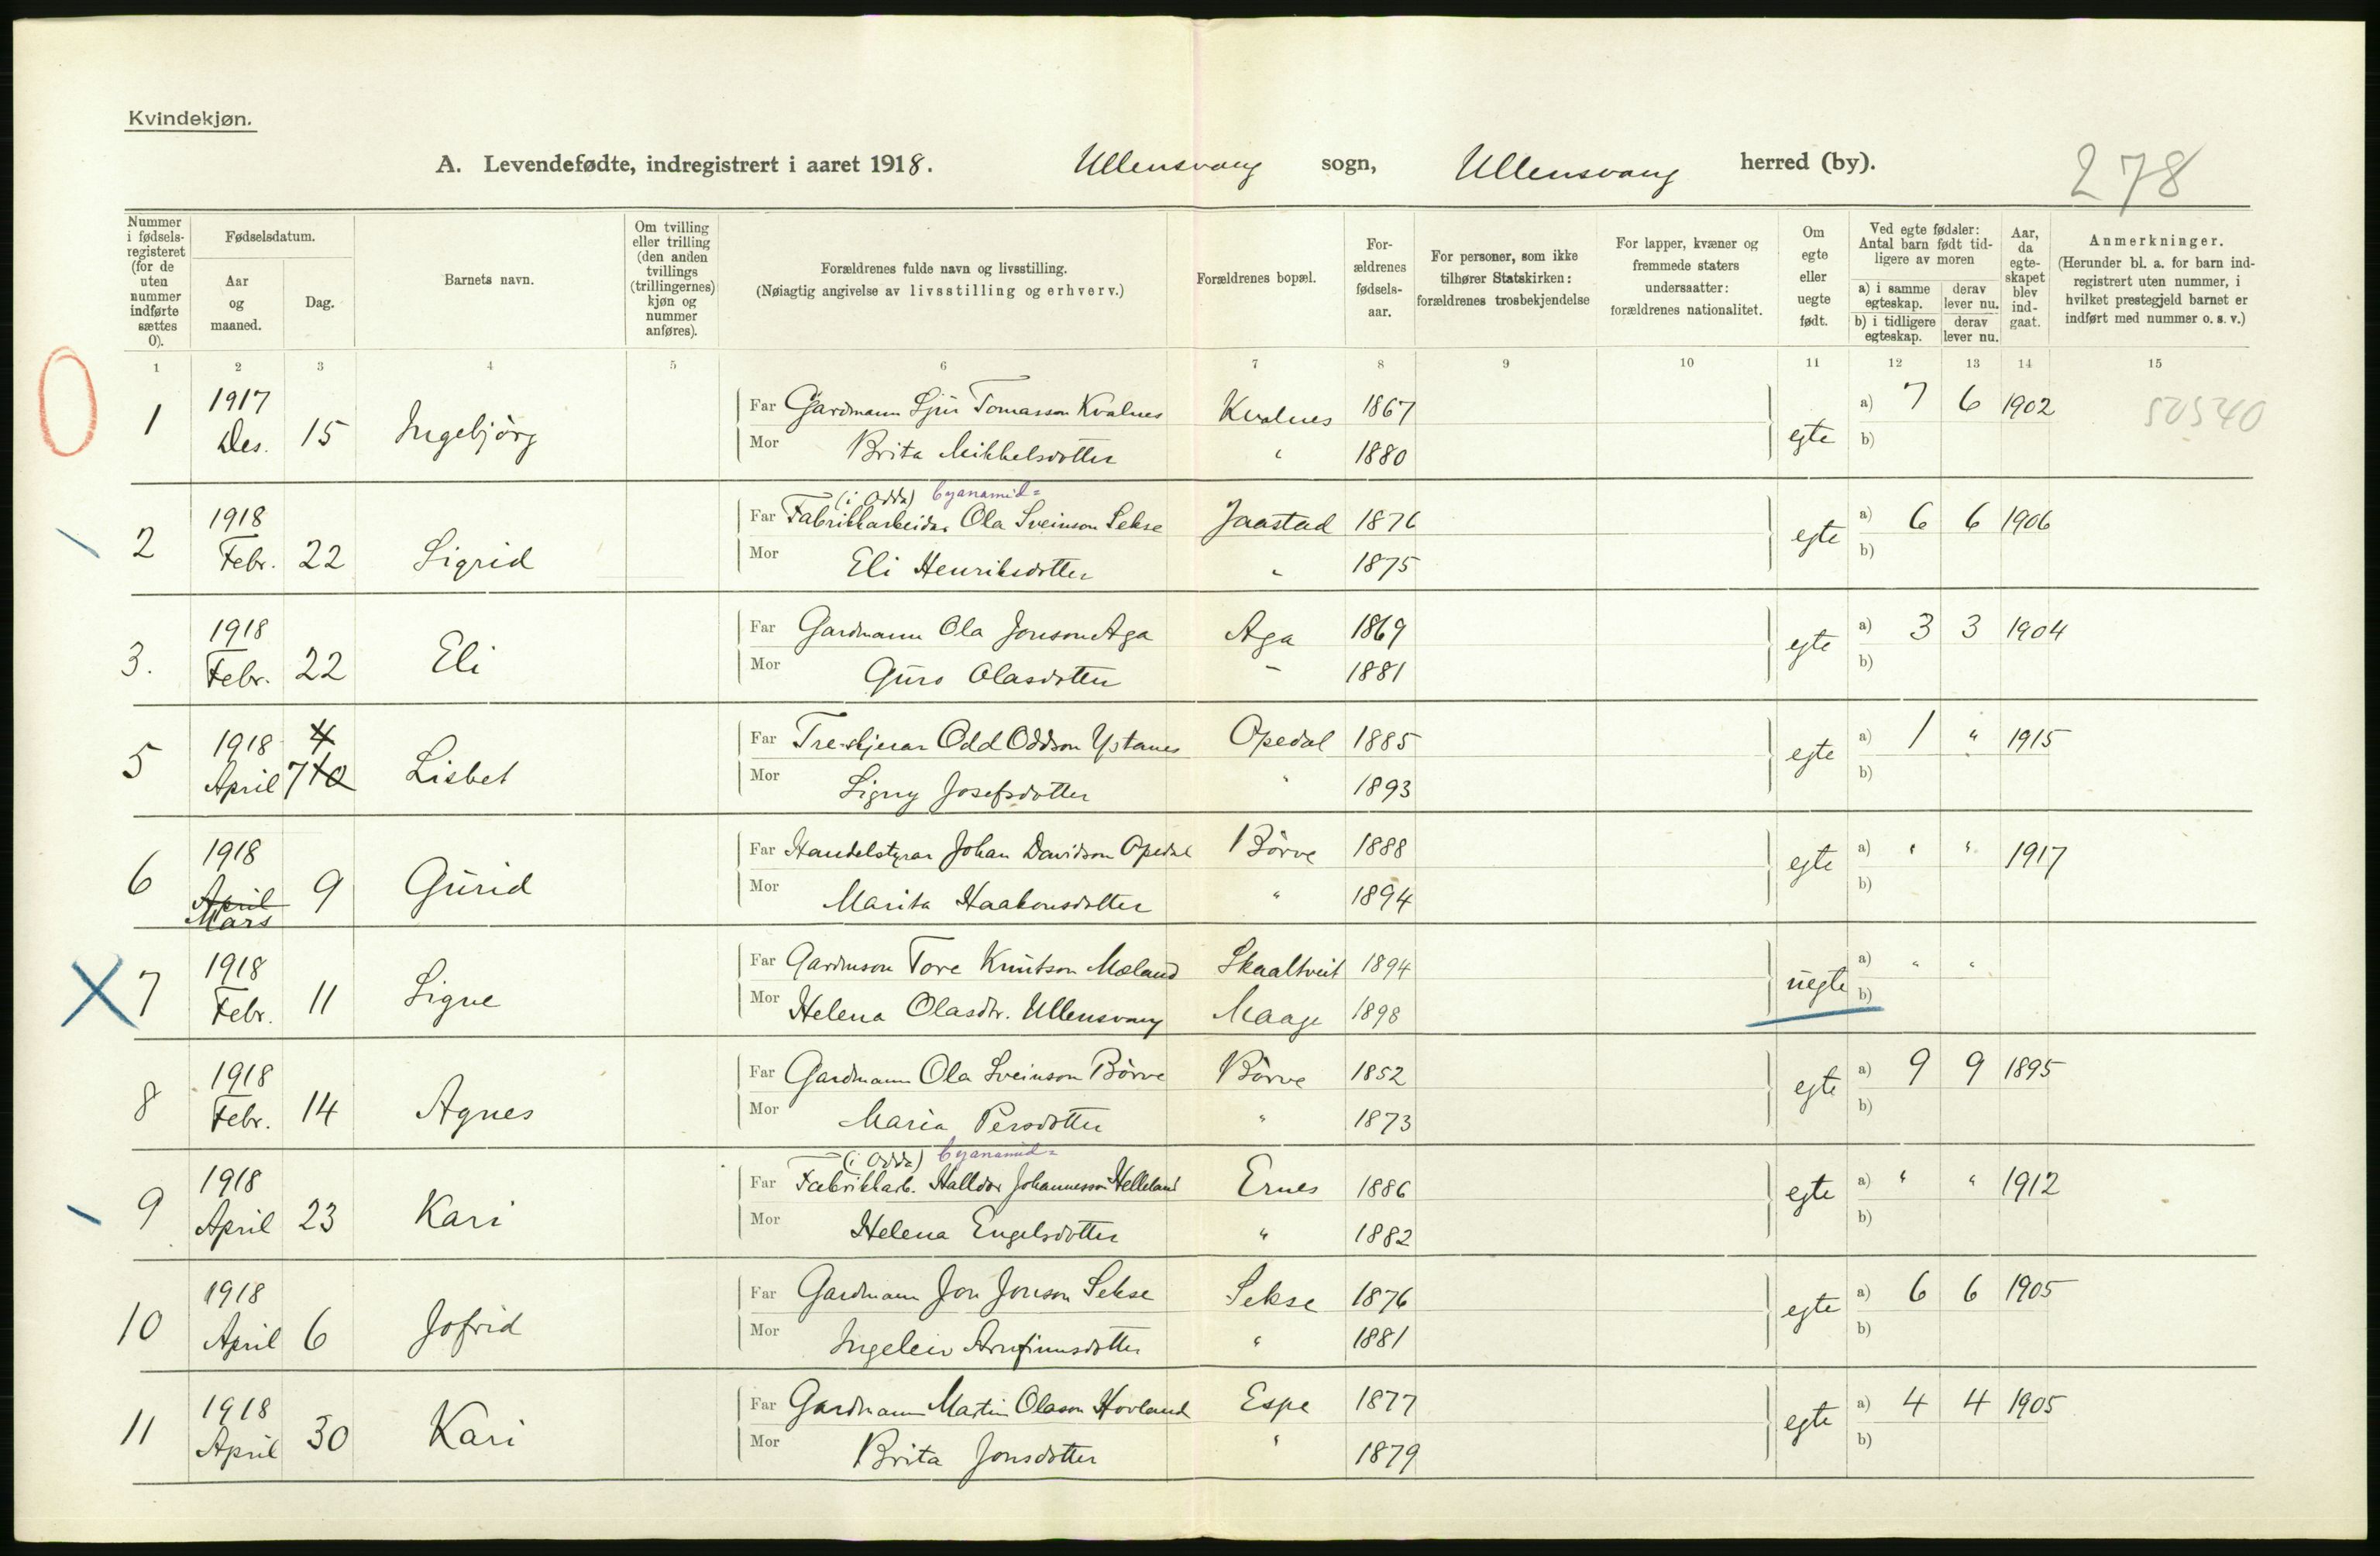 Kvindekjøn.
A. Levendefødte, indregistrert i aaret 1918. Ullensvang sogn, Ullensvang herred (by). 278
Nummer i fødsels-registeret (for de uten nummer indførte sættes 0).
Fødselsdatum.
Aar og maaned.
Dag.
Barnets navn.
Om tvilling eller trilling (den anden tvillings (trillingernes) kjøn og nummer anføres).
Forældrenes fulde navn og livsstilling.
(Nøiagtig angivelse av livsstilling og erhverv.)
Forældrenes bopæl.
For-ældrenes fødsels-aar.
For personer, som ikke tilhører Statskirken: forældrenes trosbekjendelse
For lapper, kvæner og fremmede staters undersaatter: forældrenes nationalitet.
Om egte eller uegte født.
Ved egte fødsler: Antal barn født tid-ligere av moren
a) i samme egteskap. derav lever nu.
b) i tidligere egteskap. derav lever nu.
Aar, da egte-skapet blev ind-gaat.
Anmerkninger.
(Herunder bl. a. for barn ind-registrert uten nummer, i hvilket prestegjeld barnet er indført med nummer o. s. v.)
1 2 3 4 5 6 7 8 9 10 11 12 13 14 15
0
1 1917 Des. 15 Ingebjörg
Far Gardmann Sjur Tomasson Kvalnes Kvalnes 1867 egte a) 7 6 1902 50540
Mor Brita Mikkelsdotter " 1880 b)
2 1918 Febr. 22 Sigrid
(i Odda) Cyanamid=
Far Fabrikkarbeidar Ola Sveinson Sekse Jaastad 1876 egte a) 6 6 1906
Mor Eli Henriksdotter " 1875 b)
3. 1918 Febr. 22 Eli
Far Gardmann Ola Jonson Aga Aga 1869 egte a) 3 3 1904
Mor Guro Olasdotter - 1881 b)
5 1918 April 4 7 10 Lisbet
Far Tre-skjerar Odd Oddson Ystanes Opedal 1885 egte a) 1 " 1915
Mor Signy Josefsdotter " 1893 b)
6 1918 April Mars 9 Gurid
Far Handelstyrar Johan Davidson Opedal Börve 1888 egte a) " " 1917
Mor Marita Haakonsdotter " 1894 b)
X 7 1918 Febr. 11 Signe
Far Gardmson Tore Knutson Mæland Skaaltveit 1894 uegte a) " "
Mor Helena Olasdtr. Ullensvang Maage 1898 b)
8 1918 Febr. 14 Agnes
Far Gardmann Ola Sveinson Börve Börve 1852 egte a) 9 9 1895
Mor Maria Persdotter " 1873 b)
9 1918 April 23 Kari
(i Odda) Cyanamid=
Far Fabrikkarb. Halldor Johannesson Helleland Ernes 1886 egte a) " " 1912
Mor Helena Engelsdotter " 1882 b)
10 1918 April 6 Jofrid
Far Gardmann Jon Jonson Sekse Sekse 1876 egte a) 6 6 1905
Mor Ingeleiv Arnfinnsdotter " 1881 b)
11 1918 April 30 Kari
Far Gardmann Martin Olason Hovland Espe 1877 egte a) 4 4 1905
Mor Brita Jonsdotter " 1879 b)